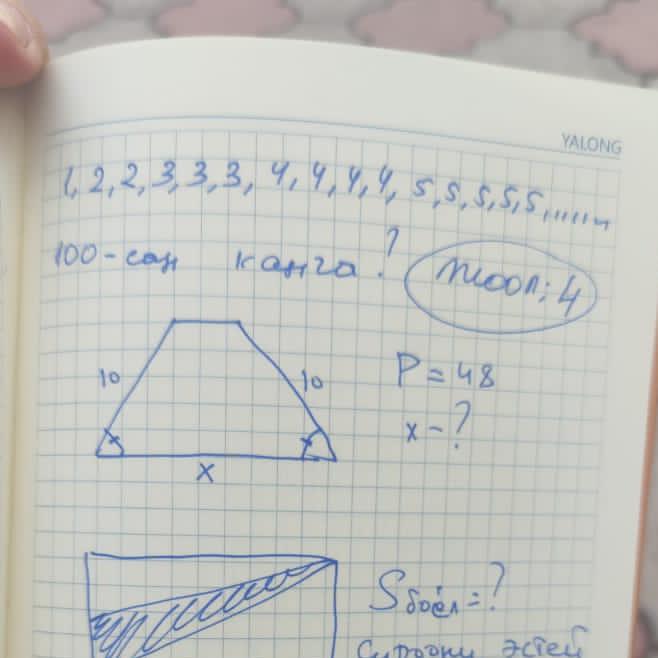 YALONG
1, 2, 2, 3, 3, 3, 4, 4, 4, 4, 5, 5, 5, 5, 5, ......
100-сан канга?
Жооп: 4
10
10
P = 48
x - ?
x
S боёл = ?
эстей